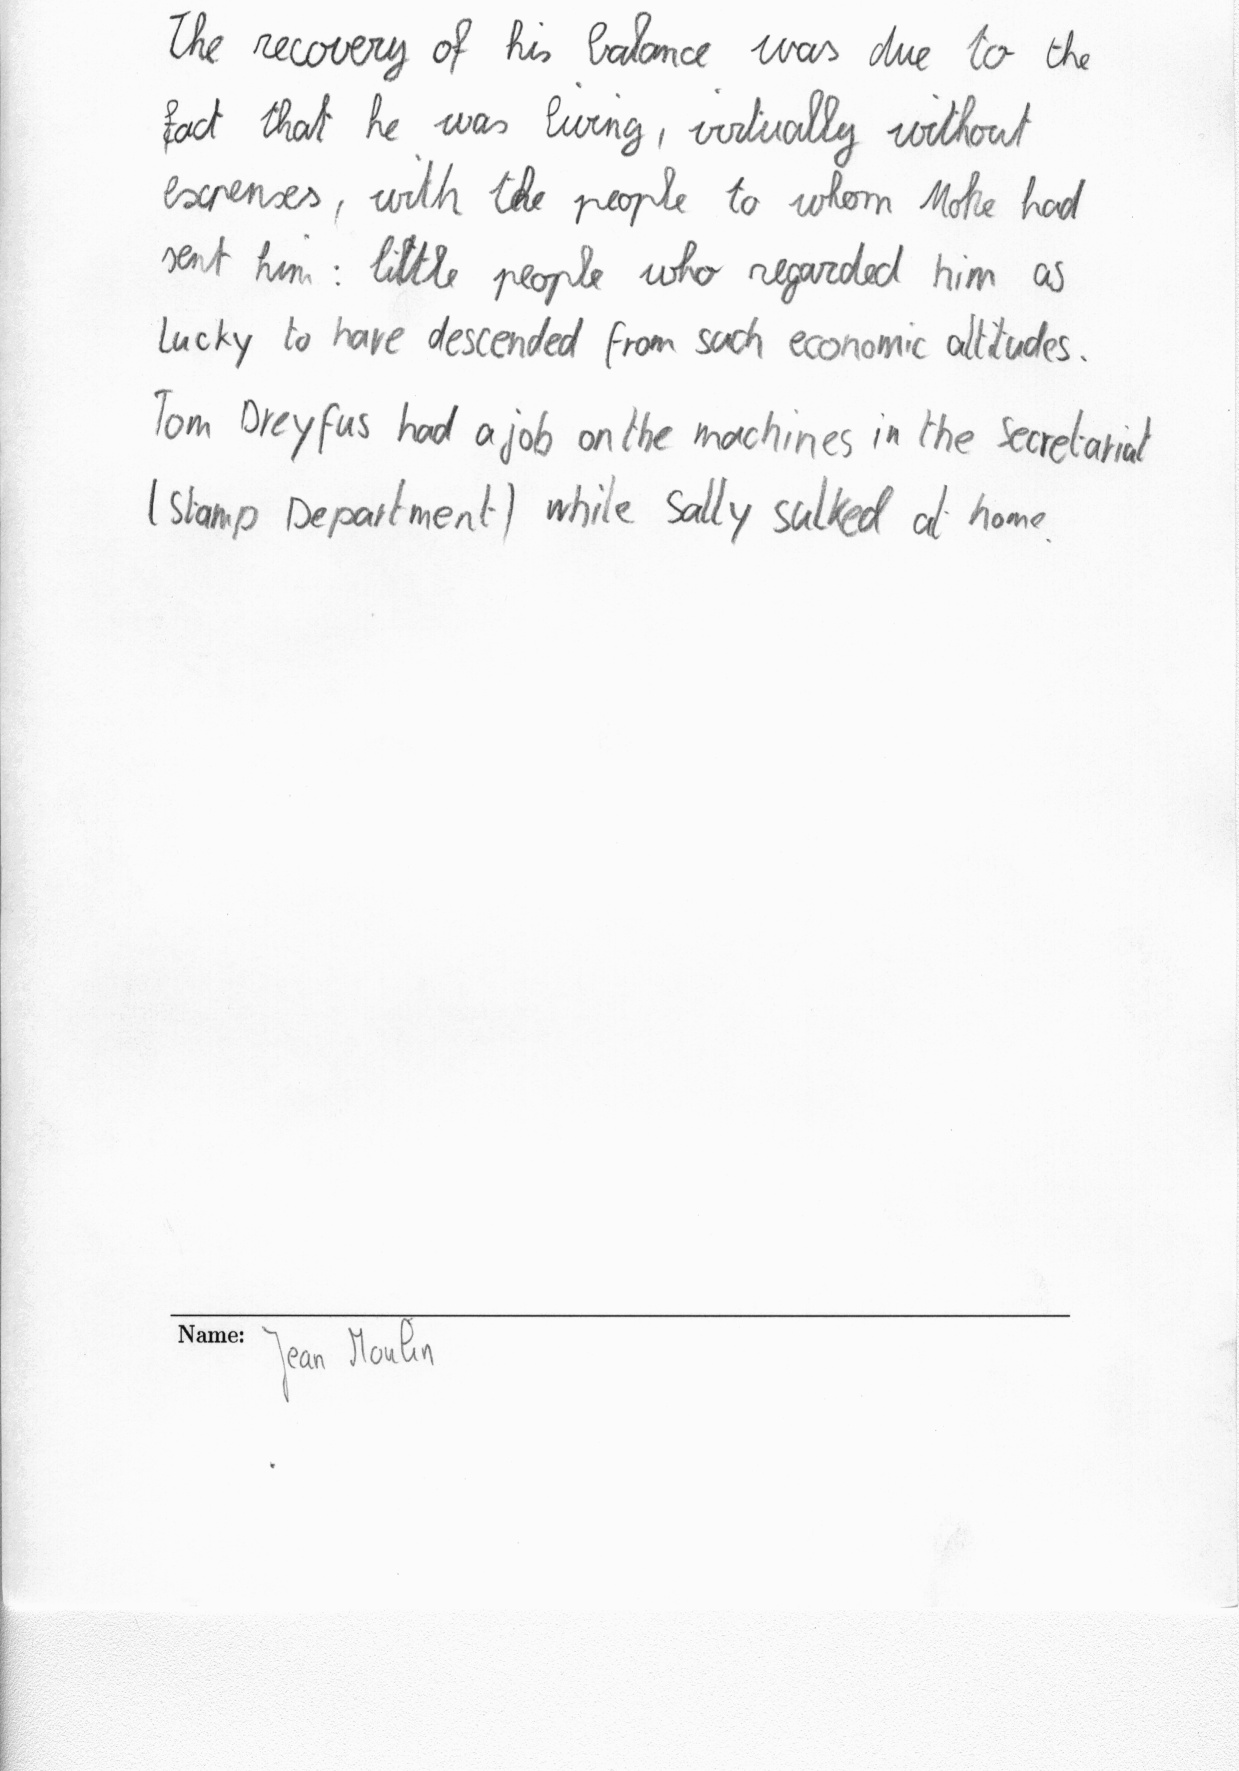 The recovery of his balance was due to the
fact that he was living, virtually without
expenses, with the people to whom Moke had
sent him : little people who regarded him as
lucky to have descended from such economic altitudes.
Tom Dreyfus had a job on the machines in the Secretariat
(Stamp Department) while Sally sulked at home.
Name: Jean Moulin